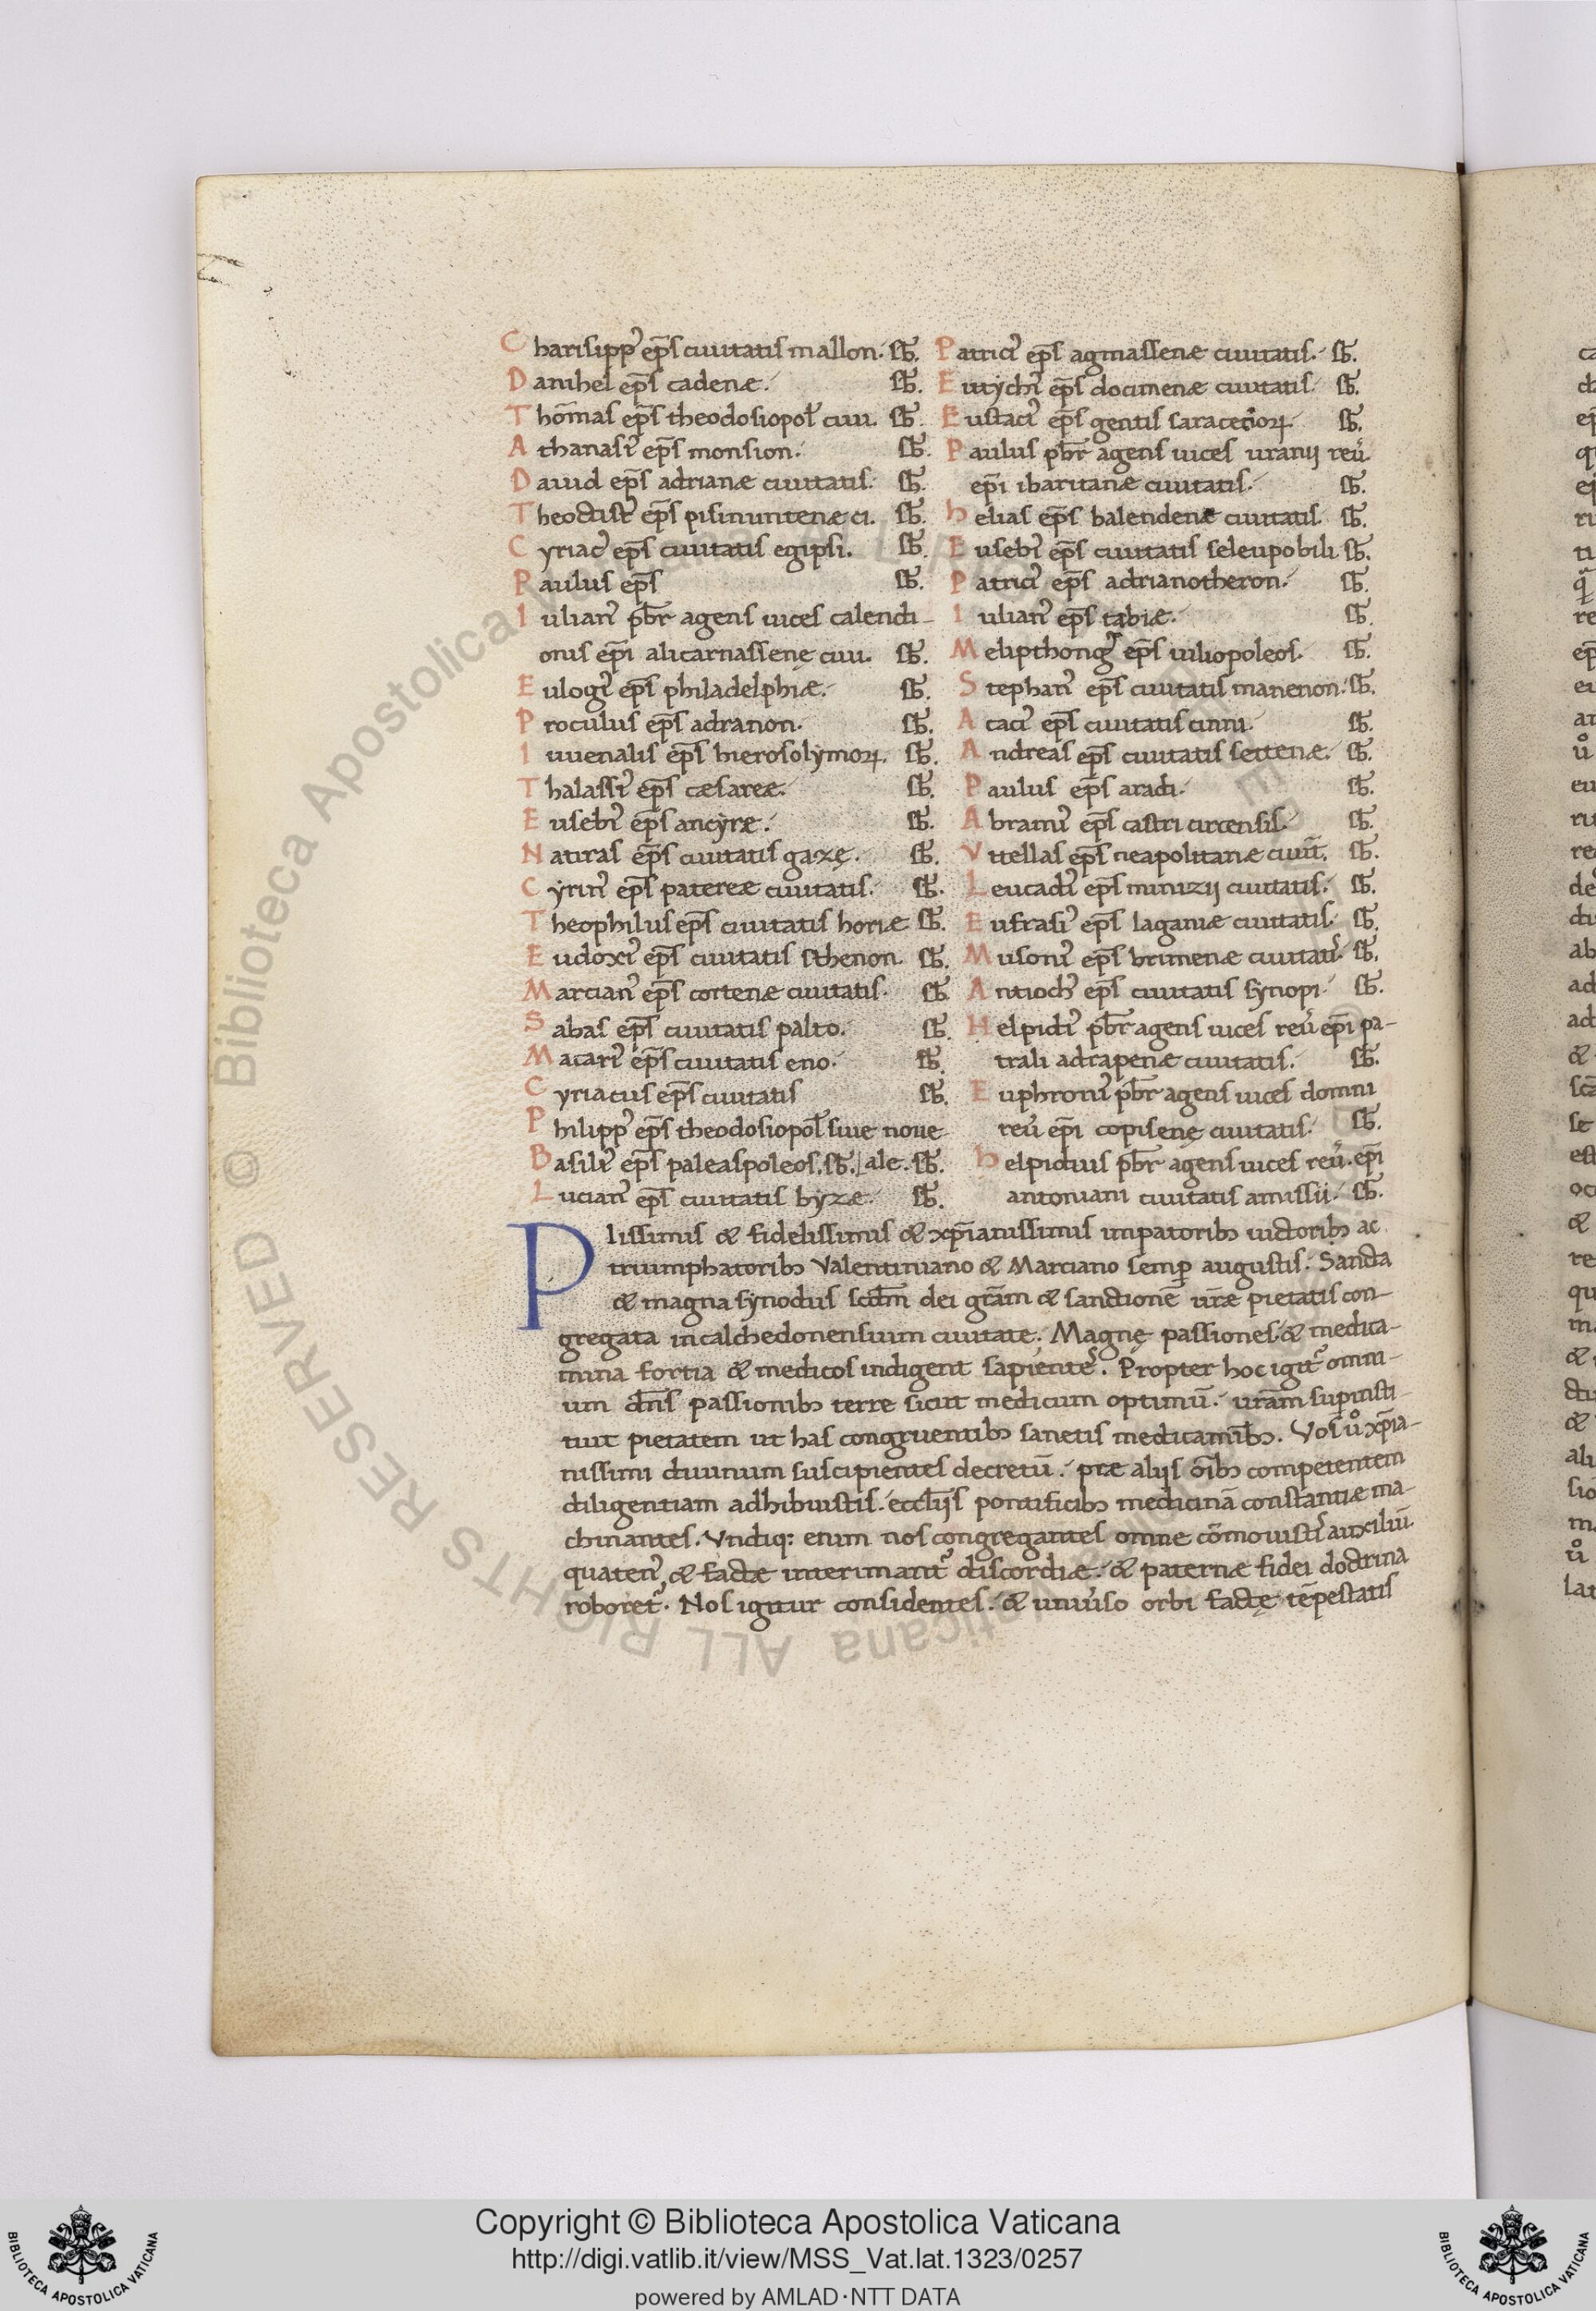 Charisipp᾽ ep̄s ciuitatis mallon. sb̄.
Danihel ep̄s cadenæ. sb̄.
Thom̄as ep̄s theodosiopol̄ ciui. sb̄.
Athanasi᾽ ep̄s monsion. sb̄.
Dauid ep̄s adrianæ ciuitatis. sb̄.
Theoctist᾽ ep̄s pisinuntenæ ci. sb̄.
Cyriac᾽ ep̄s ciuitatis egipsi. sb̄.
Paulus ep̄s sb̄.
Iulian᾽ pb̄r agens uices calendi-
onis ep̄i alicarnassenę ciui. sb̄.
Eulogi᾽ ep̄s philadelphiæ. sb̄.
Proculus ep̄s adranon. sb̄.
Iuuenalis ep̄s hierosolymoꝝ. sb̄.
Thalassi᾽ ep̄s cæsareæ. sb̄.
Eusebi᾽ ep̄s ancyræ. sb̄.
Natiras ep̄s ciuitatis gazę. sb̄.
Cyrin᾽ ep̄s patereæ ciuitatis. sb̄.
Theophilus ep̄s ciuitatis horiæ sb̄.
Eudoxi᾽ ep̄s ciuitatis sthenon. sb̄.
Marcian᾽ ep̄s cortenæ ciuitatis. sb̄.
Sabas ep̄s ciuitatis palto. sb̄.
Macari᾽ ep̄s ciuitatis eno. sb̄.
Cyriacus ep̄s ciuitatis sb̄.
Philipp᾽ ep̄s theodosiopol̄ siue noue
Basili᾽ ep̄s paleaspoleos. sb̄. ale. sb̄.
Lucian᾽ ep̄s ciuitatis byzæ. sb̄.
Patrici᾽ ep̄s agmassenæ ciuitatis. sb̄.
Eutychi᾽ ep̄s docimenæ ciuitatis. sb̄.
Eustaci᾽ ep̄s gentis saracenoꝝ. sb̄.
Paulus pb̄r agens uices uranij reu᾽.
ep̄i ibaritanæ ciuitatis. sb̄.
Helias ep̄s balendenæ ciuitatis. sb̄.
Eusebi᾽ ep̄s ciuitatis seleupobili sb̄.
Patrici᾽ ep̄s adrianotheron. sb̄.
Iulian᾽ ep̄s tabiæ. sb̄.
Melipthong᾽ ep̄s iuliopoleos. sb̄.
Stephan᾽ ep̄s ciuitatis manenon. sb̄.
Acaci᾽ ep̄s ciuitatis cinni. sb̄.
Andreas ep̄s ciuitatis settenæ. sb̄.
Paulus ep̄s aradi. sb̄.
Abrami᾽ ep̄s castri circensis. sb̄.
Vitellas ep̄s neapolitanæ ciuit̄. sb̄.
Leucadi᾽ ep̄s minizij ciuitatis. sb̄.
Eufrasi᾽ ep̄s laganiæ ciuitatis. sb̄.
Musoni᾽ ep̄s brimenæ ciuitati᾽. sb̄.
Antioch᾽ ep̄s ciuitatis synopi. sb̄.
Helpidi᾽ pb̄r agens uices reu᾽ ep̄i pa-
trali adrapenæ ciuitatis. sb̄.
Euphroni᾽ pb̄r agens uices domni
reu᾽ ep̄i copisenę ciuitatis. sb̄.
Helpidius pb̄r agens uices reu᾽. ep̄i
antoniani ciuitatis amissii. sb̄.
PIissimis & fidelissimis & xp̄ianissimis impatoribꝫ uictoribꝫ ac
triumphatoribꝫ Valentiniano & Marciano semꝑ augustis. Sancta
& magna synodus scd̄m dei gr̄am & sanctionē ur̄æ pietatis con-
gregata in calchedonensium ciuitate. Magnę passiones & medica-
mina fortia & medicos indigent sapiente᾽. Propter hoc igit᾽ omni-
um dn̄s passionibꝫ terre sicut medicum optimū. ur̄am suꝑinsti-
tuit pietatem ut has congruentibꝫ sanetis medicamīibꝫ. Vos u̾ xp̄ia-
nissimi diuinum suscipientes decretū. præ alijs oīb̄ꝫ competentem
diligentiam adhibuistis. eccl̄ijs pontificibꝫ medicinā constantiæ ma-
chinantes. Vndiqꝫ enim nos congregantes omne cōmouisti᾽ auxiliū.
quaten᾽ & factæ interimant᾽ discordiæ. & paternæ fidei doctrina
roboret᾽. Nos igitur considentes. & uniu᾽so orbi factę tēpestatis
© Biblioteca Apostolica Vaticana ALL RIGHTS RESERVED
Copyright © Biblioteca Apostolica Vaticana
http://digi.vatlib.it/view/MSS_Vat.lat.1323/0257
powered by AMLAD·NTT DATA
BIBLIOTECA APOSTOLICA VATICANA
BIBLIOTECA APOSTOLICA VATICANA